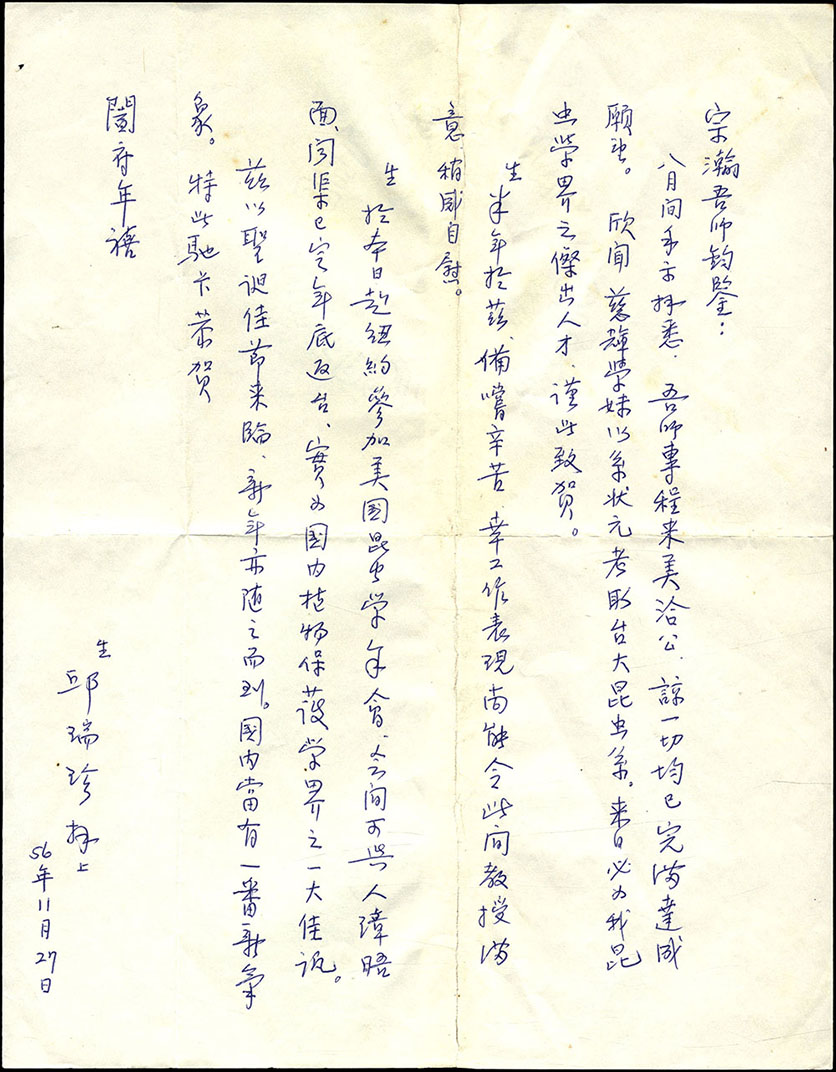 宗瀚吾師鈞鑒：
八月間手示拜悉．吾師專程來美洽公．諒一切均已完滿達成
願望。欣聞 慈輝學妹以系狀元考取台大昆虫系。来日必为我昆
虫學界之傑出人才．謹此致賀。
生半年於茲、備嚐辛苦．幸工作表現尚能令此间教授满
意稍感自慰。
生於本日赴紐約參加美國昆虫学年會、会间可與人璋晤
面、闻渠已定年底返台、實为國内植物保護学界之一大佳訊。
茲以聖诞佳節来臨、新年亦随之而到。國内當有一番新氣
象。特此馳卡恭賀
闔府年禧
生邱瑞珍拜上
56年11月27日